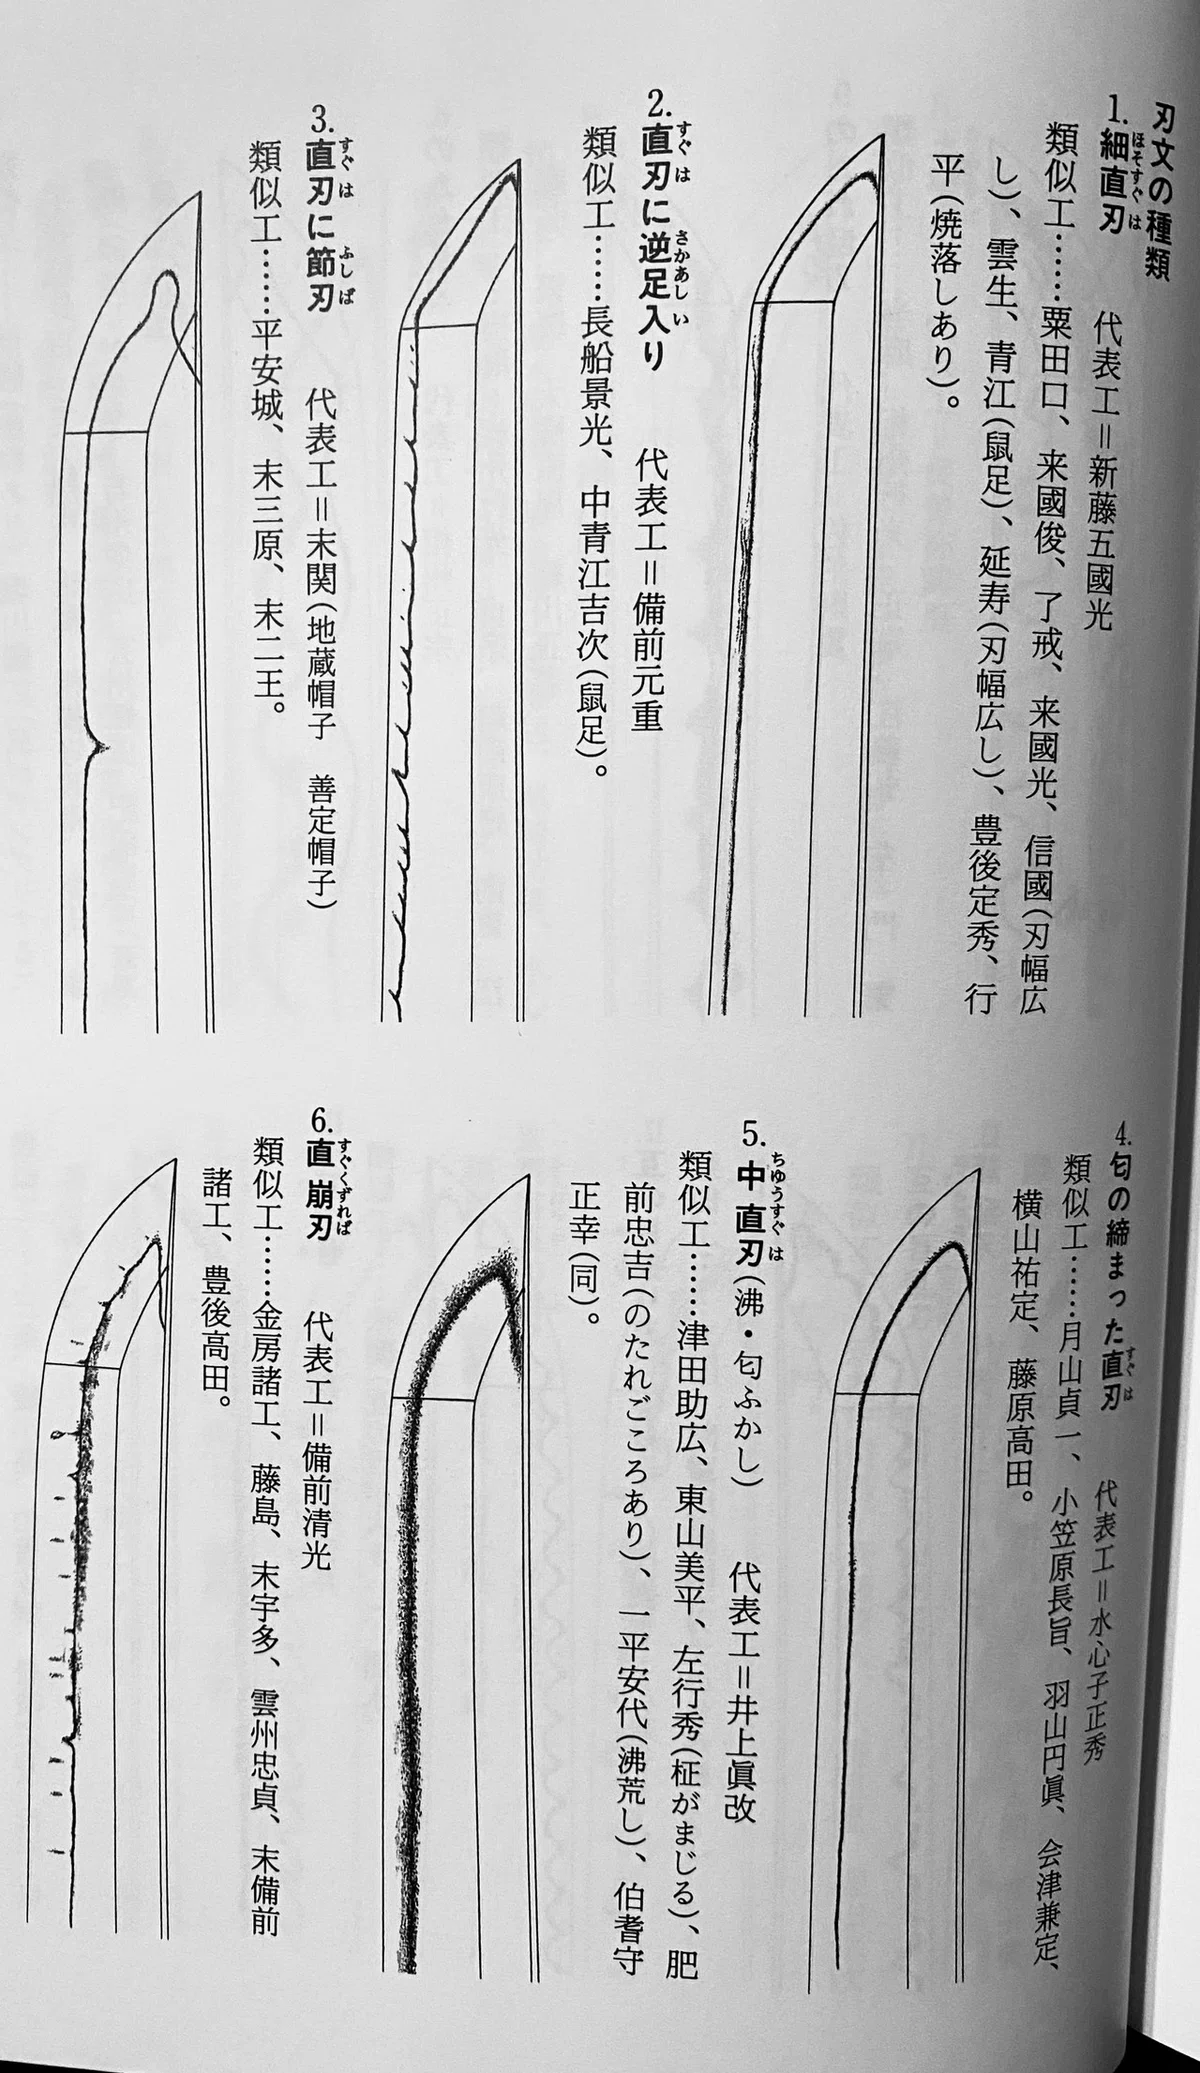 刃文の種類
1. 細直刃　代表工＝新藤五國光
ほそすぐは
類似工……粟田口、来國俊、了戒、来國光、信國（刃幅広
し）、雲生、青江（鼠足）、延寿（刃幅広し）、豊後定秀、行
平（焼落しあり）。
2. 直刃に逆足入り　代表工＝備前元重
すぐは　さかあしい
類似工……長船景光、中青江吉次（鼠足）。
3. 直刃に節刃　代表工＝末関（地蔵帽子　善定帽子）
すぐは　ふしば
類似工……平安城、末三原、末二王。
4. 匂の締まった直刃　代表工＝水心子正秀
すぐは
類似工……月山貞一、小笠原長旨、羽山円眞、会津兼定、
横山祐定、藤原高田。
5. 中直刃（沸・匂ふかし）　代表工＝井上眞改
ちゆうすぐは
類似工……津田助広、東山美平、左行秀（柾がまじる）、肥
前忠吉（のたれごころあり）、一平安代（沸荒し）、伯耆守
正幸（同）。
6. 直崩刃　代表工＝備前清光
すぐくずれば
類似工……金房諸工、藤島、末宇多、雲州忠貞、末備前
諸工、豊後高田。